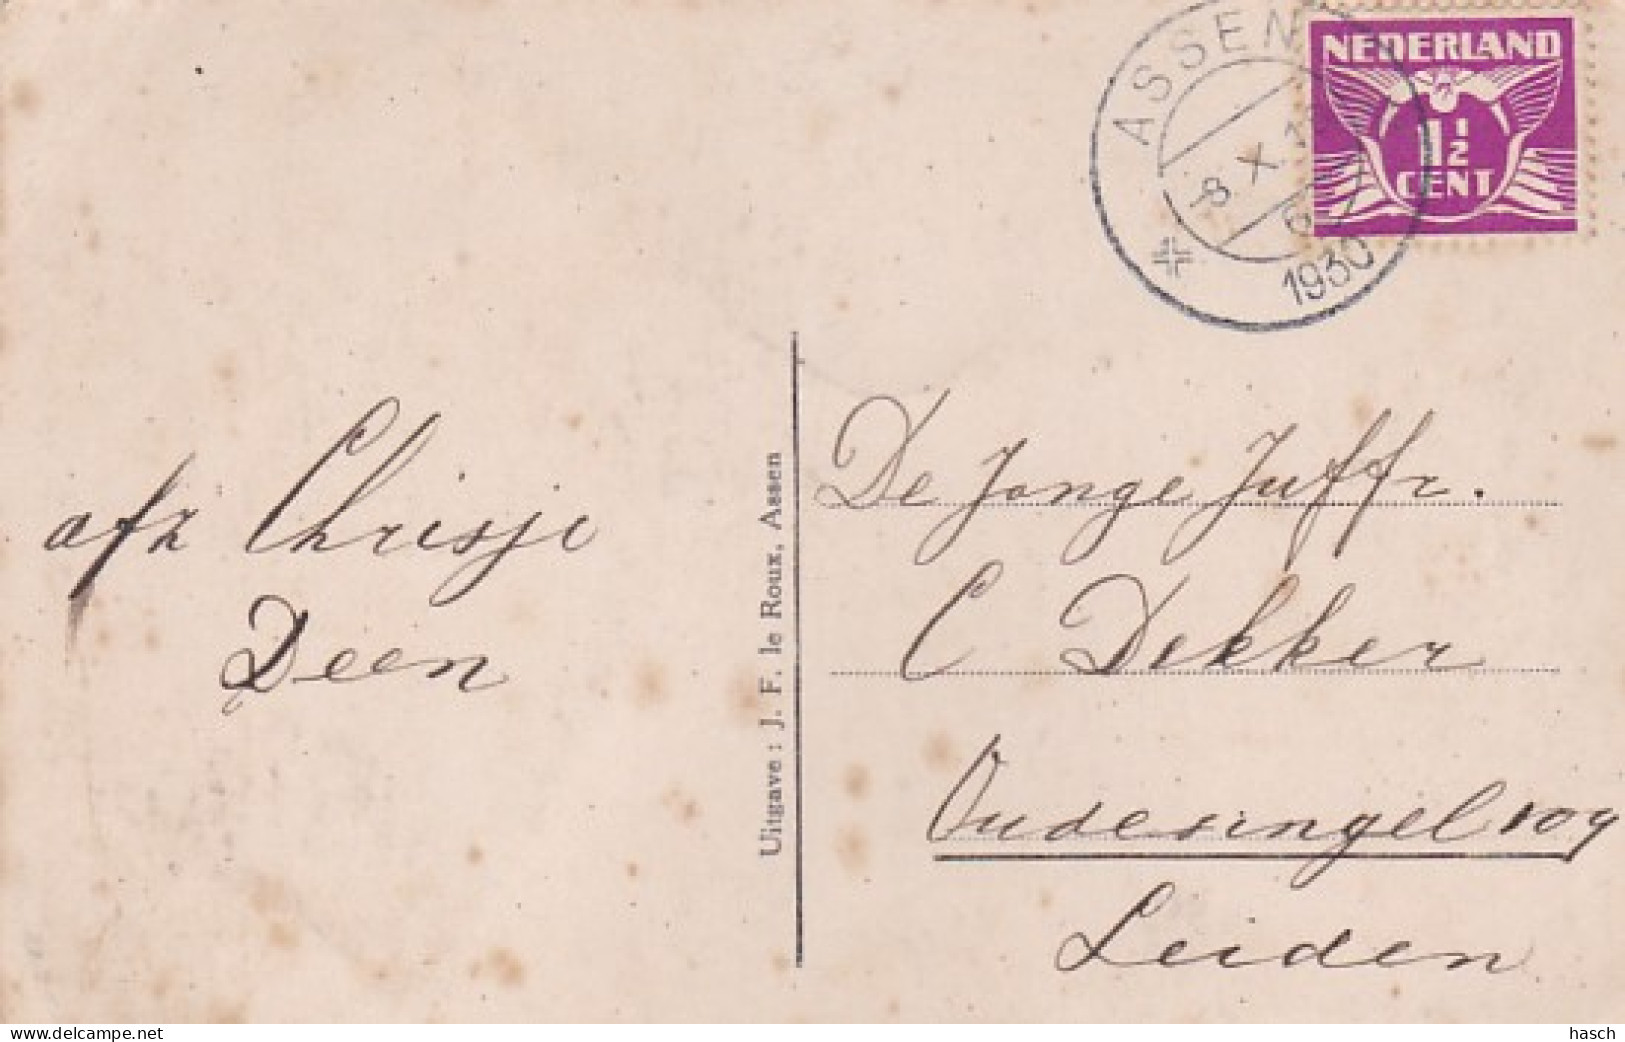 ASSEN
-8 X
1930
NEDERLAND
1½
CENT
afz Chrisje
Deen
Uitgave : J. F. le Roux, Assen
De Jonge Juffr.
C Dekker
Oudesingel 109
Leiden
delcampe.net
hasch